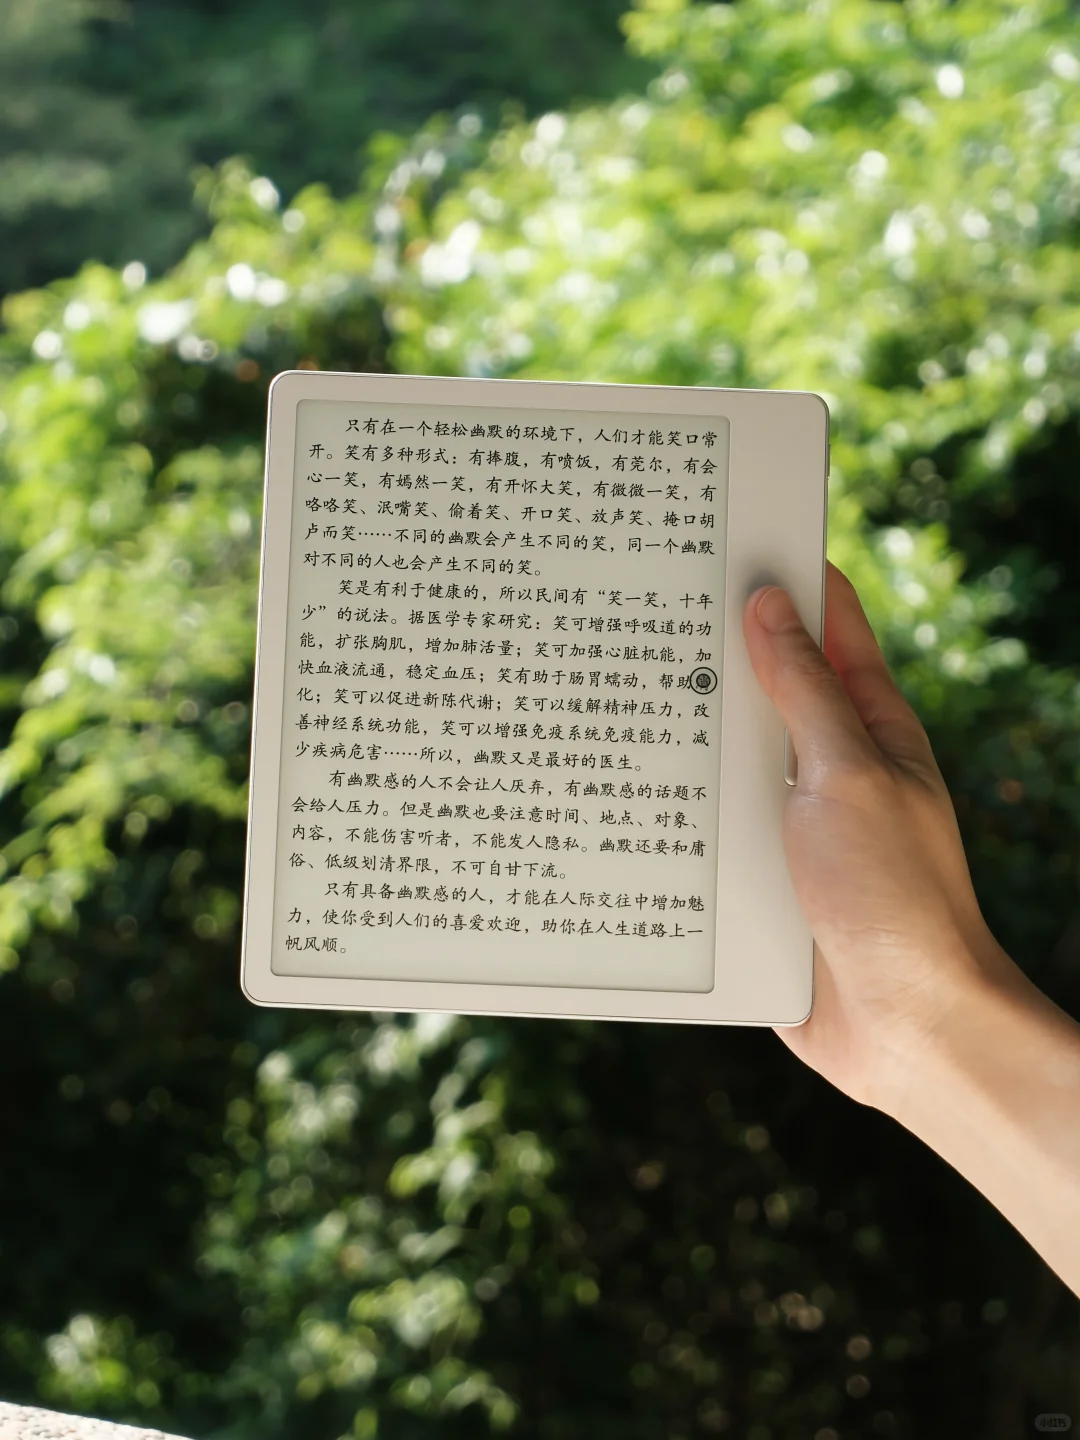 只有在一个轻松幽默的环境下，人们才能笑口常
开。笑有多种形式：有捧腹，有喷饭，有莞尔，有会
心一笑，有嫣然一笑，有开怀大笑，有微微一笑，有
咯咯笑、泯嘴笑、偷着笑、开口笑、放声笑、掩口胡
卢而笑……不同的幽默会产生不同的笑，同一个幽默
对不同的人也会产生不同的笑。
笑是有利于健康的，所以民间有“笑一笑，十年
少”的说法。据医学专家研究：笑可增强呼吸道的功
能，扩张胸肌，增加肺活量；笑可加强心脏机能，加
快血液流通，稳定血压；笑有助于肠胃蠕动，帮助
化；笑可以促进新陈代谢；笑可以缓解精神压力，改
善神经系统功能，笑可以增强免疫系统免疫能力，减
少疾病危害……所以，幽默又是最好的医生。
有幽默感的人不会让人厌弃，有幽默感的话题不
会给人压力。但是幽默也要注意时间、地点、对象、
内容，不能伤害听者，不能发人隐私。幽默还要和庸
俗、低级划清界限，不可自甘下流。
只有具备幽默感的人，才能在人际交往中增加魅
力，使你受到人们的喜爱欢迎，助你在人生道路上一
帆风顺。
小红书